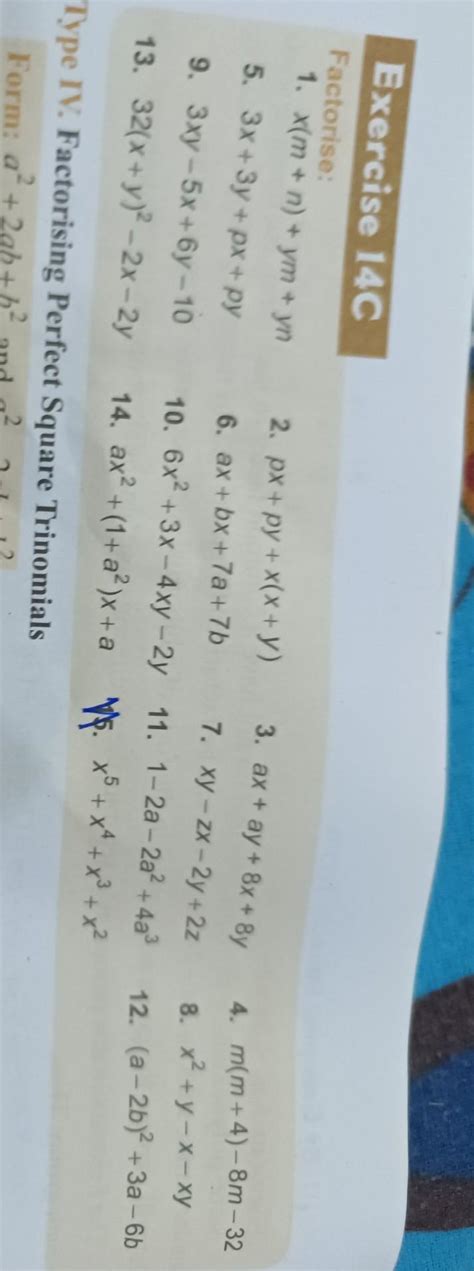 Exercise 14C
Factorise:
1. x(m + n) + ym + yn 2. px + py + x(x + y) 3. ax + ay + 8x + 8y 4. m(m + 4) – 8m – 32
5. 3x + 3y + px + py 6. ax + bx + 7a + 7b 7. xy – zx – 2y + 2z 8. x² + y – x – xy
9. 3xy – 5x + 6y – 10 10. 6x² + 3x – 4xy – 2y 11. 1 – 2a – 2a² + 4a³ 12. (a – 2b)² + 3a – 6b
13. 32(x + y)² – 2x – 2y 14. ax² + (1 + a²)x + a 15. x⁵ + x⁴ + x³ + x²
Type IV. Factorising Perfect Square Trinomials
Form: a² + 2ab + b² and a²